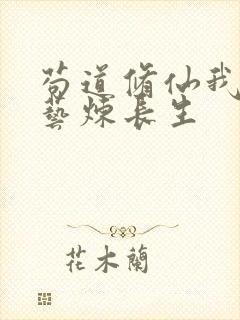 苟道脩仙我
藝煉長生
花木蘭